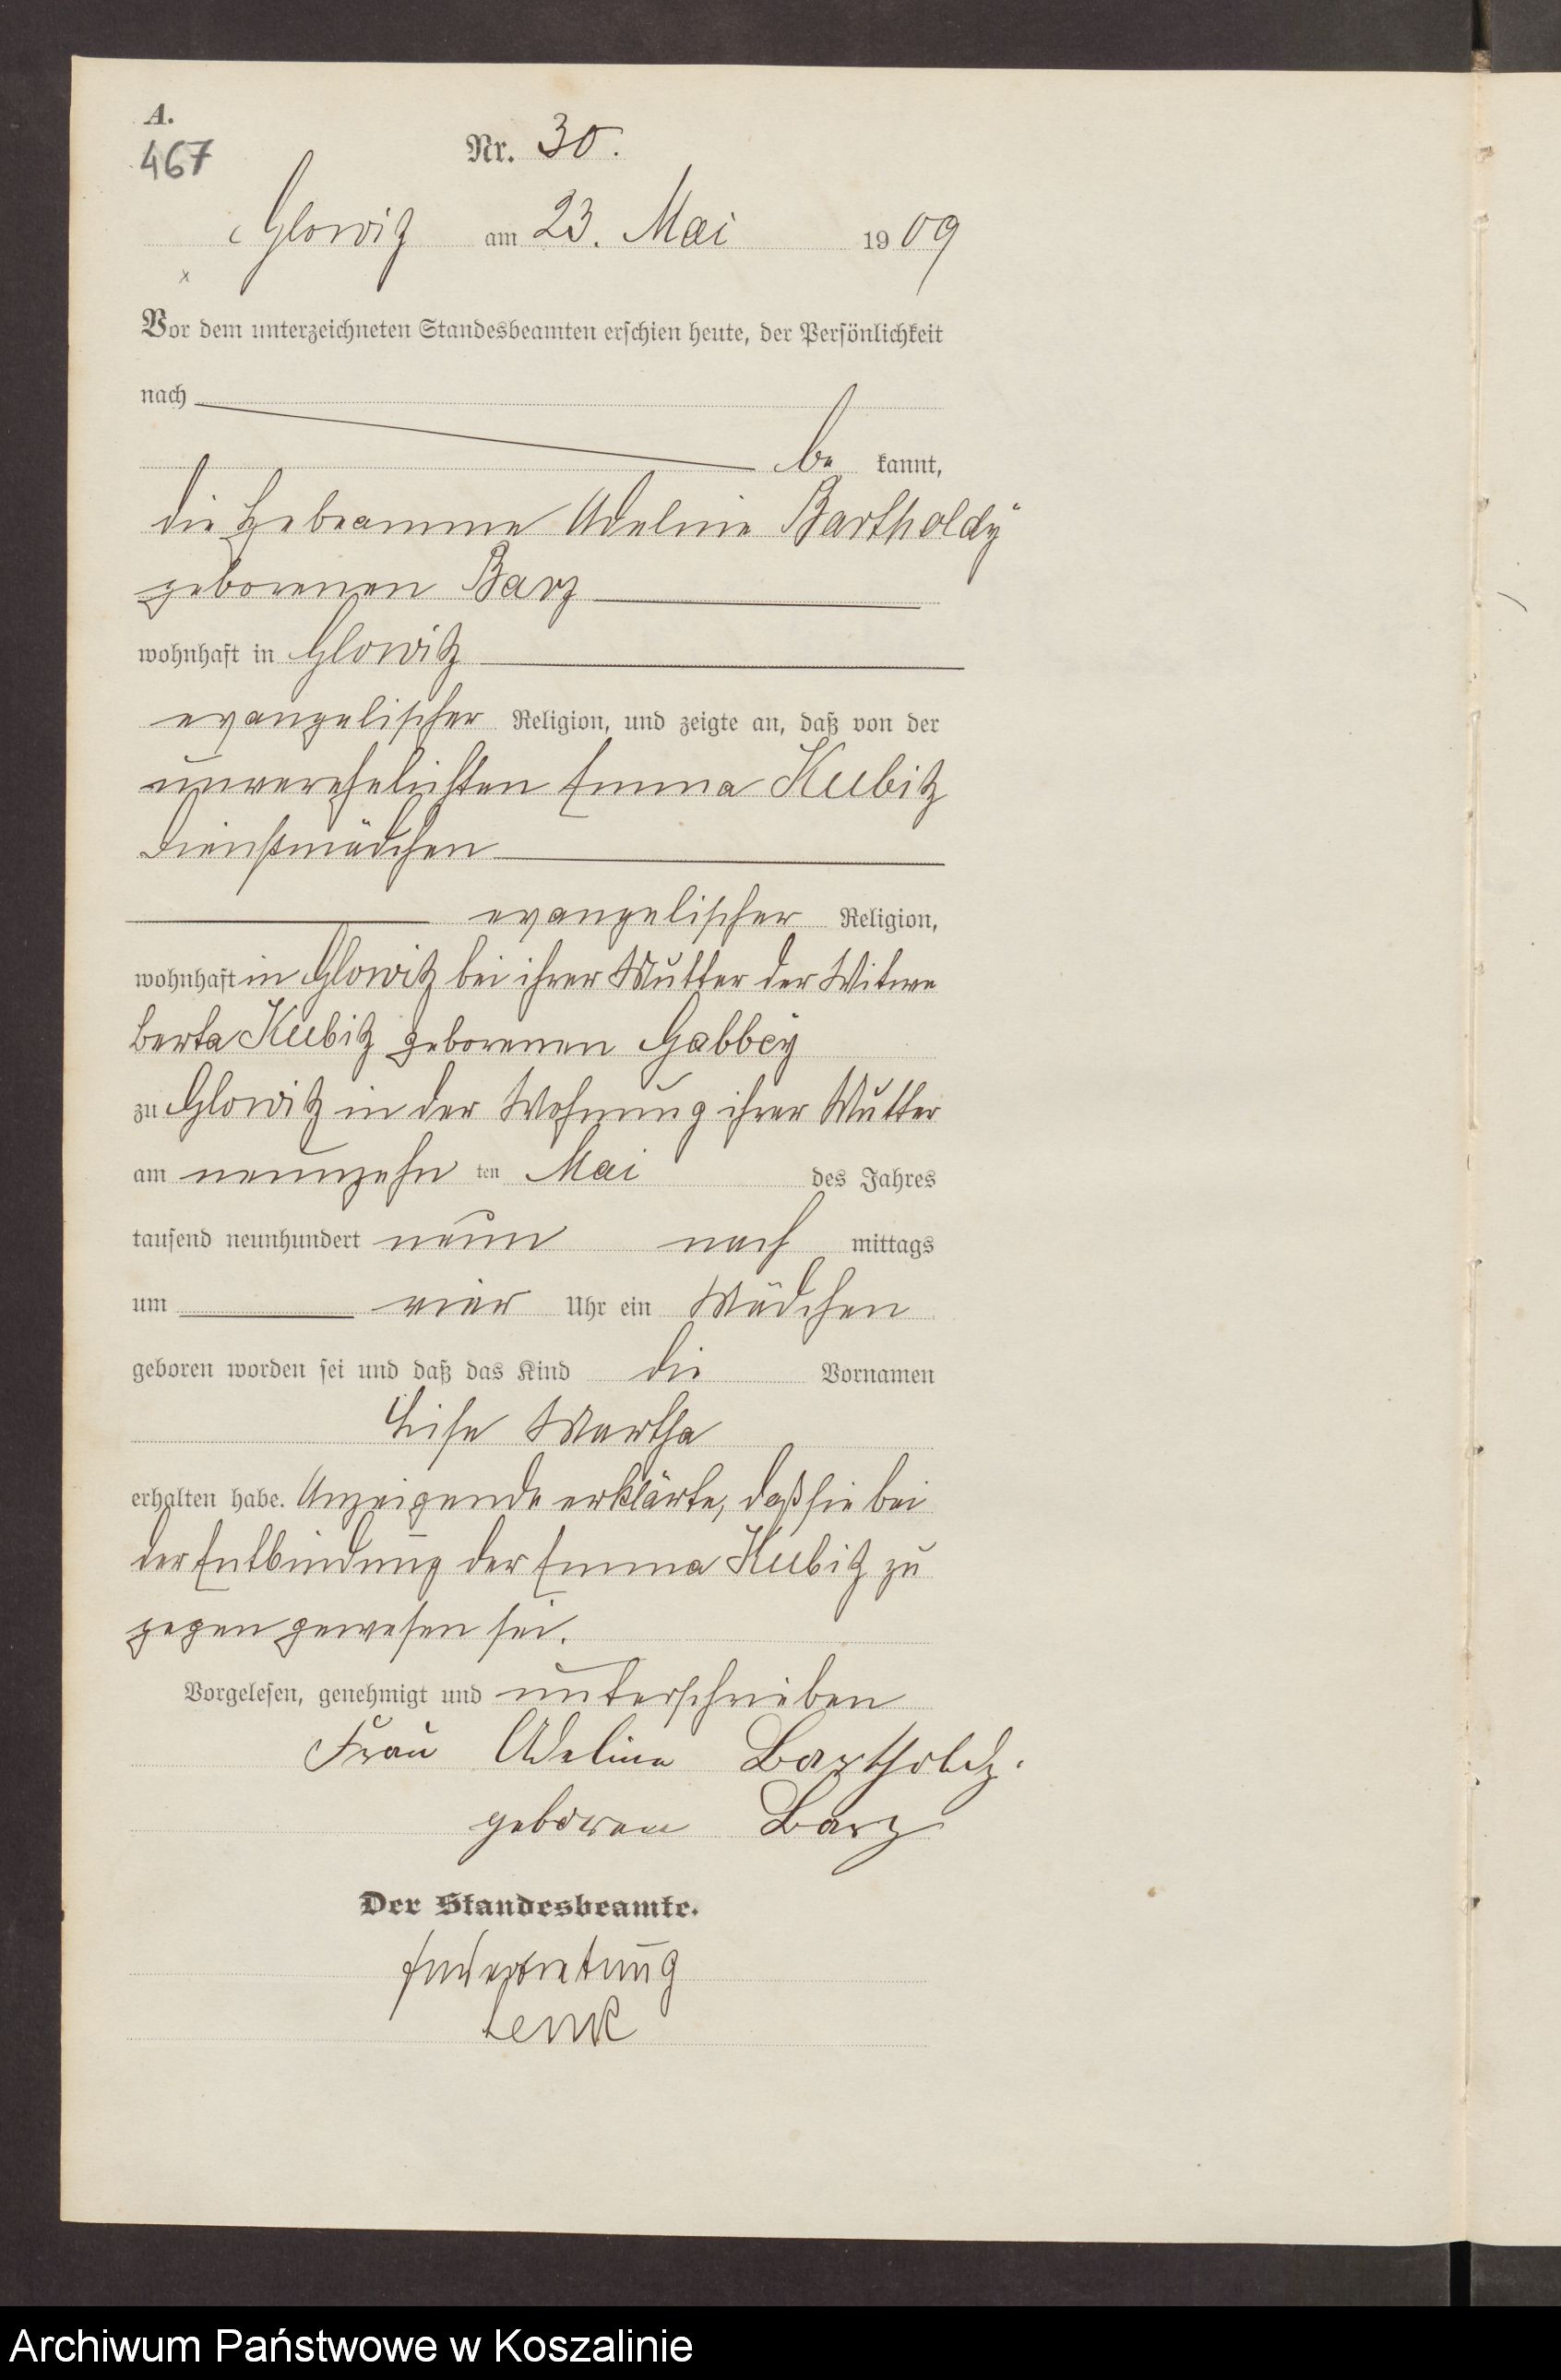 A.
467
Nr. 30.
Glowitz am 23. Mai 1909
x
Vor dem unterzeichneten Standesbeamten erschien heute, der Persönlichkeit
nach
be kannt,
die Hebeamme Adeline Bartholdÿ
geborenen Barz
wohnhaft in Glowitz
evangelischer Religion, und zeigte an, daß von der
unverehelichten Emma Kubitz
Dienstmädchen
evangelischer Religion,
wohnhaft in Glowitz bei ihrer Mutter der Witwe
Berta Kubitz geborenen Gabbeÿ
zu Glowitz in der Wohnung ihrer Mutter
am neunzehn ten Mai des Jahres
tausend neunhundert neun nach mittags
um vier Uhr ein Mädchen
geboren worden sei und daß das Kind die Vornamen
Lise Martha
erhalten habe. Anzeigende erklärte, daß sie bei
der Entbindung der Emma Kubitz zu
gegen gewesen sei.
Vorgelesen, genehmigt und unterschrieben
Frau Adeline Bartholdy.
geborene Barz
Der Standesbeamte.
In Vertretung
Lenk
Archiwum Państwowe w Koszalinie